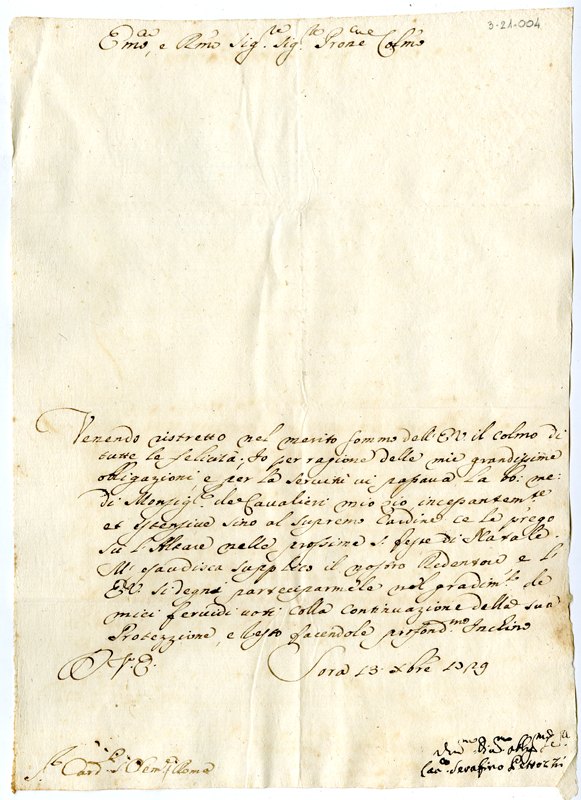 3-21-004
Emo, e Rmo Sig.r Sig.r Prone Colmo
Venendo ristretto nel merito sommo dell'EV. il colmo di
tutte le felicità, Io per ragione delle mie grandissime
obligazioni e per la servitù vi passava la bo: me:
di Monsig.r de Cavalieri mio zio incessantemte
et estensive sino al supremo Cardine ce le prego
su l'Altare nelle prossime S. feste di Natale.
M'esaudisca supplico il nostro Redentore e l'
EV. si degni parteciparmele nel gradim.to de
miei fervidi voti colla Continuazione della sua
Protezzione, e resto facendole profond.mo Inchino
D V. E.
Sora 13 Xbre 1729
Card.
Serafino Petrozzi